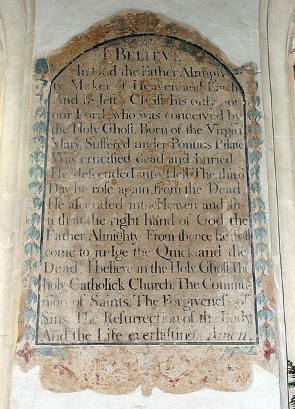 I BELIEVE
In God the Father Almighty
Maker of Heaven and Earth
And in Jesus Christ his only Son
our Lord, who was conceived by
the Holy Ghost, Born of the Virgin
Mary, Suffered under Pontius Pilate
Was crucified dead and buried
He descended into Hell The third
Day he rose again from the Dead,
He ascended into Heaven and sit-
teth at the right hand of God the
Father Almighty From thence he shall
come to judge the Quick and the
Dead. I believe in the Holy Ghost. The
Holy Catholick Church, The Commu-
nion of Saints, The Forgiveness of
Sins, The Resurrection of the Body,
And the Life everlasting. Amen.